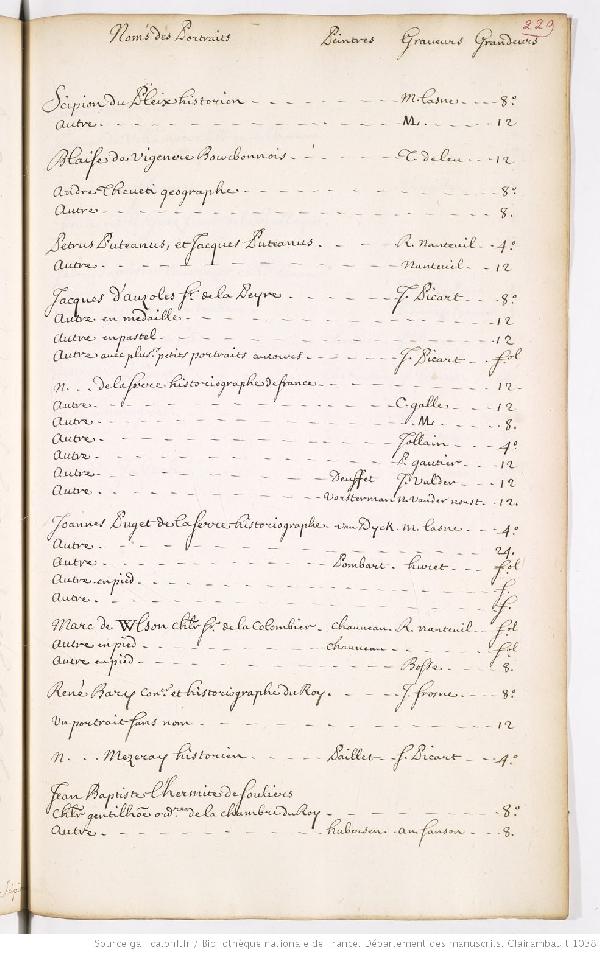 229
Noms des Portraits Peintres Graveurs Grandeurs
Scipion du Pleix historien - - - - M. lasne - - 8°
Autre - - - - M. - - 12
Blaise de Vigenere Bourbonnois - - - T. de leu - - 12
Andres Theueti geographe - - - - 8°
Autre - - - - 8.
Petrus Puteanus, et Jacques Puteanus - - - R. Nanteuil - - 4°
Autre - - - - Nanteuil - - 12
Jacques d'auzoles Sr. de la Peyre - - - J. Picart - - 8°
Autre en medaille - - - - 12
Autre en pastel - - - - 12
Autre auec plusr. petits portraits autours - - - J. Picart - - fol
N. . . de la serre historiographe de france - - - - 12
Autre - - - - C. galle - - 12
Autre - - - - M. - - 8.
Autre - - - - Jollain - - 4°
Autre - - - - P. gautier - - 12
Autre - - - - Deuffet J. Valder - - 12
Autre - - - - Vorsterman N. Vander horst - - 12.
Joannes Puget de la serre historiographe - van Dyck - M. lasne - - 4°
Autre - - - - 24.
Autre - - - - Pombart - huret - - fol
Autre en pied - - - - f.
Autre - - - - f.
Marc de Wlson chlr. Sr. de la Colombier - Chauueau - R. Nanteuil - - fol
Autre en pied - - - - chauueau - - fol
Autre en pied - - - - Bosse - - 8.
René Bary conr. et historiographe du Roy - - - J. frosne - - 8°
Un portrait sans nom - - - - 12
N. . . Mezeray historien - - - Paillet - J. Picart - - 4°
Jean Baptiste l'hermite de souliers
chlr. gentilhoe ordre. de la chambre du Roy - - - - 8°
Autre - - - - an sanson - - 8.
Source gallica.bnf.fr / Bibliothèque nationale de France. Département des manuscrits. Clairambault 1038